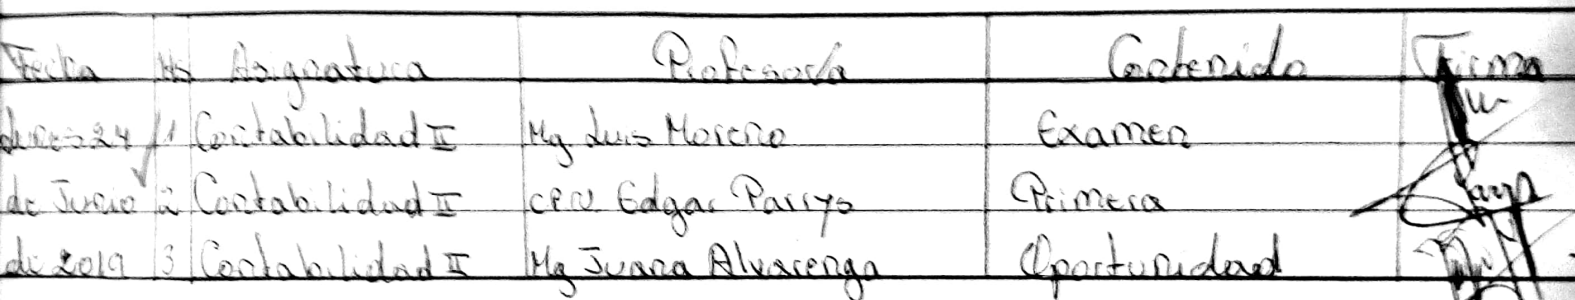 Fecha Hs Asignatura Profesor/a Contenido Firma
Lunes 24 1 Contabilidad II Mg Luis Moreno Examen
de Junio 2 Contabilidad II CPN Edgar Parrys Primera
de 2019 3 Contabilidad II Mg Juana Alvarenga Oportunidad